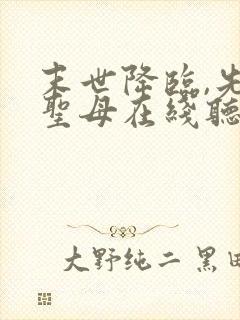 末世降臨,先
聖母在綫聽
大野纯二 黑田